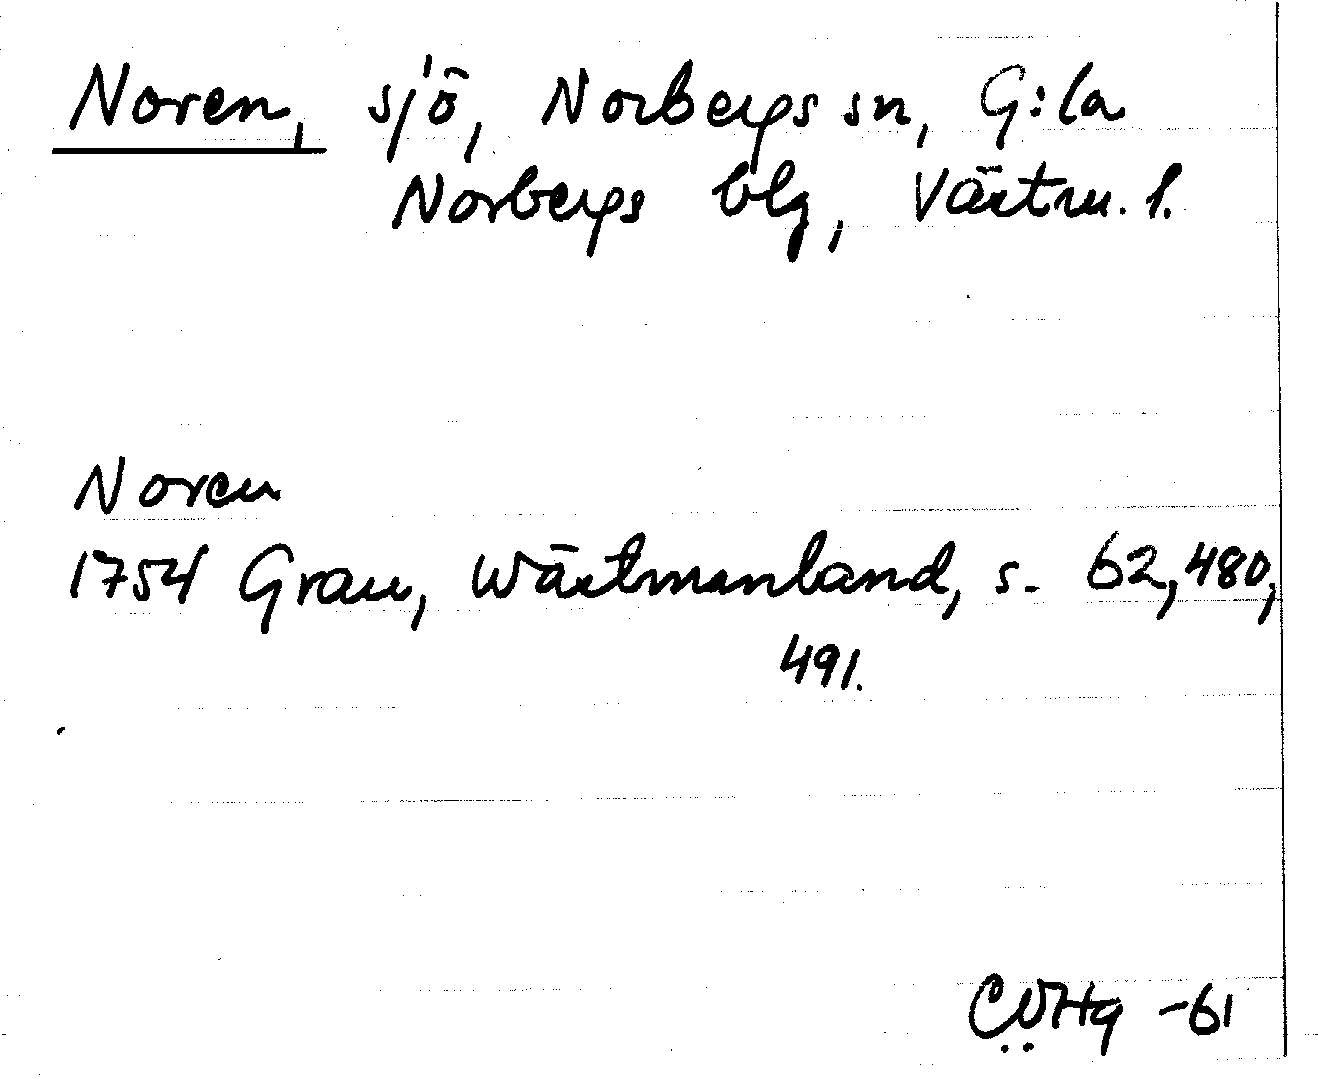 Noren, sjö, Norbergs sn, G:la
Norbergs blg, Västm. l.
Noren
1754 Grau, Wästmanland, s. 62, 480,
491.
-61